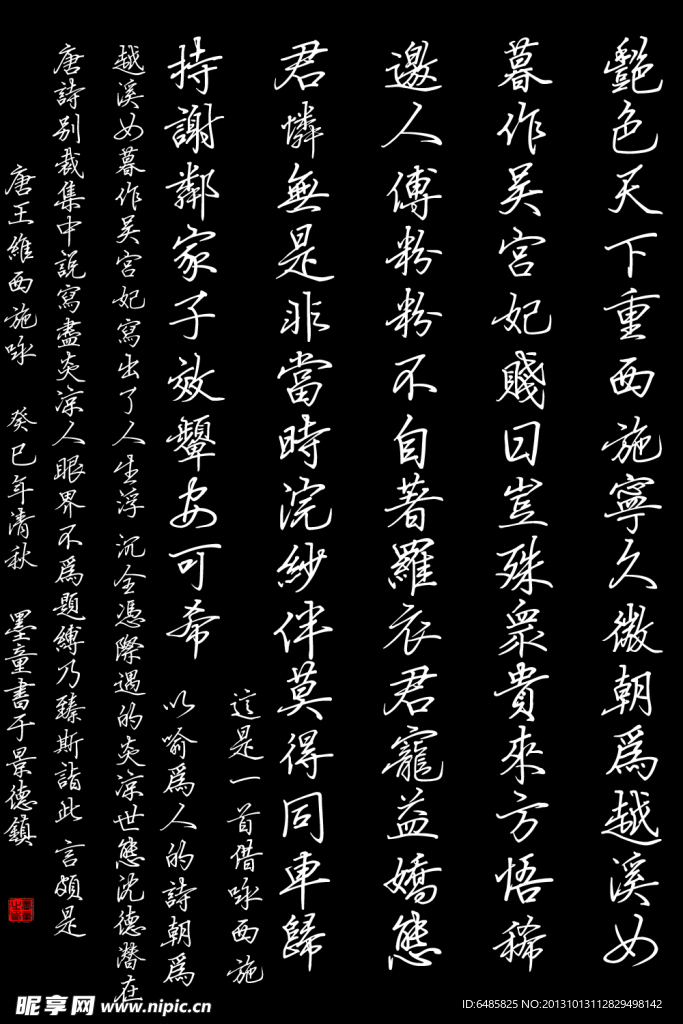 艷色天下重西施寧久微朝爲越溪女
暮作吴宮妃賤日豈殊衆貴來方悟稀
邀人傅粉粉不自著羅衣君寵益嬌態
君憐無是非當時浣紗伴莫得同車歸
持謝鄰家子效顰安可希
這是一首借咏西施
以喻爲人的詩朝爲
越溪女暮作吴宮妃寫出了人生浮沉全憑際遇的炎凉世態沈德潛在
唐詩别裁集中説寫盡炎凉人眼界不爲題縛乃臻斯詣此言頗是
唐王維西施咏 癸巳年清秋 墨童書于景德鎮
昵享网 www.nipic.cn
ID:6485825 NO:20131013112829498142